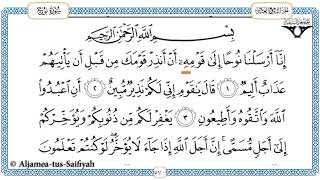 سورة نوح
بِسْمِ اللَّهِ الرَّحْمَٰنِ الرَّحِيمِ
إِنَّا أَرْسَلْنَا نُوحًا إِلَىٰ قَوْمِهِ أَنْ أَنذِرْ قَوْمَكَ مِن قَبْلِ أَن يَأْتِيَهُمْ
عَذَابٌ أَلِيمٌ ١ قَالَ يَا قَوْمِ إِنِّي لَكُمْ نَذِيرٌ مُّبِينٌ ٢ أَنِ اعْبُدُوا
اللَّهَ وَاتَّقُوهُ وَأَطِيعُونِ ٣ يَغْفِرْ لَكُم مِّن ذُنُوبِكُمْ وَيُؤَخِّرْكُمْ
إِلَىٰ أَجَلٍ مُّسَمًّى إِنَّ أَجَلَ اللَّهِ إِذَا جَاءَ لَا يُؤَخَّرُ لَوْ كُنتُمْ تَعْلَمُونَ
© Aljamea-tus-Saifiyah
٥٧٠